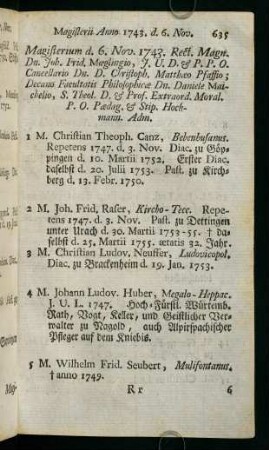 Magisterii Anno 1743. d. 6. Nov. 635
Magisterium d. 6. Nov. 1743. Rect. Magn.
Dn. Joh. Frid. Möglingio, J. U. D. & P. P. O.
Cancellario Dn. D. Christoph. Matthæo Pfaffio;
Decano Facultatis Philosophicæ Dn. Daniele Mai-
chelio, S. Theol. D. & Prof. Extraord. Moral.
P. O. Pædag. & Stip. Hoch-
mann. Adm.
1 M. Christian Theoph. Canz, Bebenhusanus.
Repetens 1747. d. 3. Nov. Diac. zu Göp-
pingen d. 10. Martii 1752. Erster Diac.
daselbst d. 20. Julii 1753. Past. zu Kirch-
berg d. 13. Febr. 1750.
2 M. Joh. Frid. Raser, Kircho-Tecc. Repe-
tens 1747. d. 3. Nov. Past. zu Dettingen
unter Urach d. 30. Martii 1753-55. † da-
selbst d. 25. Martii 1755. ætatis 32. Jahr.
3 M. Christian Ludov. Neuffer, Ludovicopol.
Diac. zu Brackenheim d. 19. Jan. 1753.
4 M. Johann Ludov. Huber, Megalo-Heppac.
J. U. L. 1747. Hoch-Fürstl. Würtemb.
Rath, Vogt, Keller, und Geistlicher Ver-
walter zu Nagold, auch Alpirspachischer
Pfleger auf dem Kniebis.
5 M. Wilhelm Frid. Seubert, Mulifontanus.
† anno 1749.
R r 6